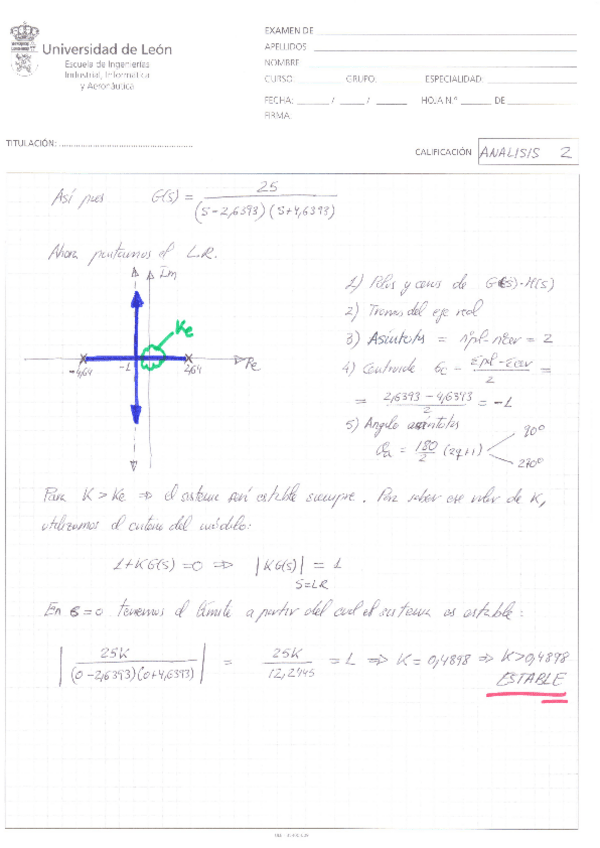 Universidad de León
Escuela de Ingenierías
Industrial, Informática
y Aeronáutica
EXAMEN DE
APELLIDOS
NOMBRE
CURSO: GRUPO: ESPECIALIDAD:
FECHA: / / HOJA N.º DE
FIRMA:
TITULACIÓN:
CALIFICACIÓN ANALISIS 2
Así pues G(s) = 25 / (s-2,6393)(s+4,6393)
Ahora pintamos el L.R.
Im
Ke
-4,64 -1 2,64 Re
1) Polos y ceros de G(s)·H(s)
2) Tramos del eje real
3) Asíntotas = nºpol-nºcer = 2
4) Centroide σc = Σpol-Σcer / 2 =
= 2,6393-4,6393 / 2 = -1
5) Angulo asíntotas
θa = 180/2 (2q+1) 90º
270º
Para K > Ke ⇒ el sistema será estable siempre. Para saber ese valor de K,
utilizamos el criterio del módulo:
1+KG(s) = 0 ⇒ |KG(s)| = 1
s=LR
En s=0 tenemos el límite a partir del cual el sistema es estable:
|25K / (0-2,6393)(0+4,6393)| = 25K / 12,2445 = 1 ⇒ K = 0,4898 ⇒ K>0,4898
ESTABLE